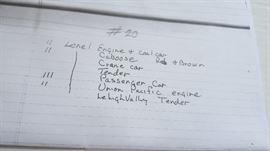 #20
Lionel Engine & Coal car
Caboose Red & Brown
Crane car
Tender
Passenger Car
Union Pacific engine
Lehigh Valley Tender